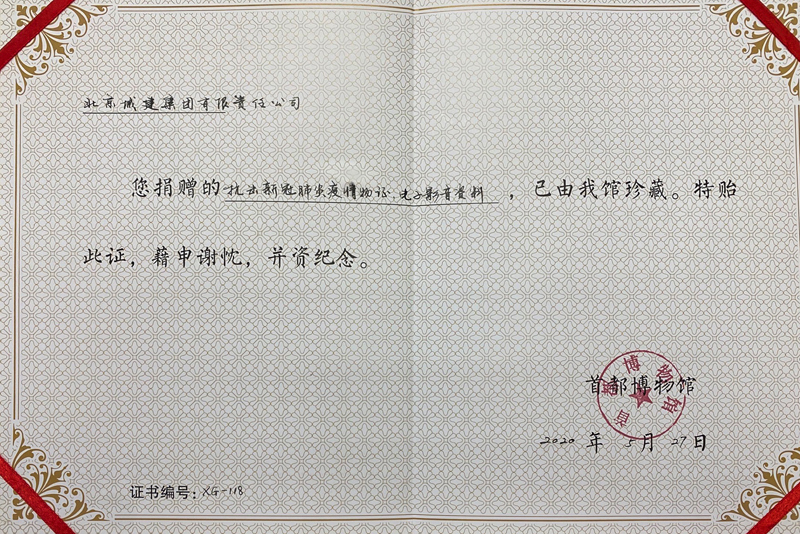 北京城建集团有限责任公司
您捐赠的抗击新冠肺炎疫情物证、电子影音资料，已由我馆珍藏。特贻
此证，藉申谢忱，并资纪念。
首都博物馆
首都博物馆
2020年5月27日
证书编号：XG-118